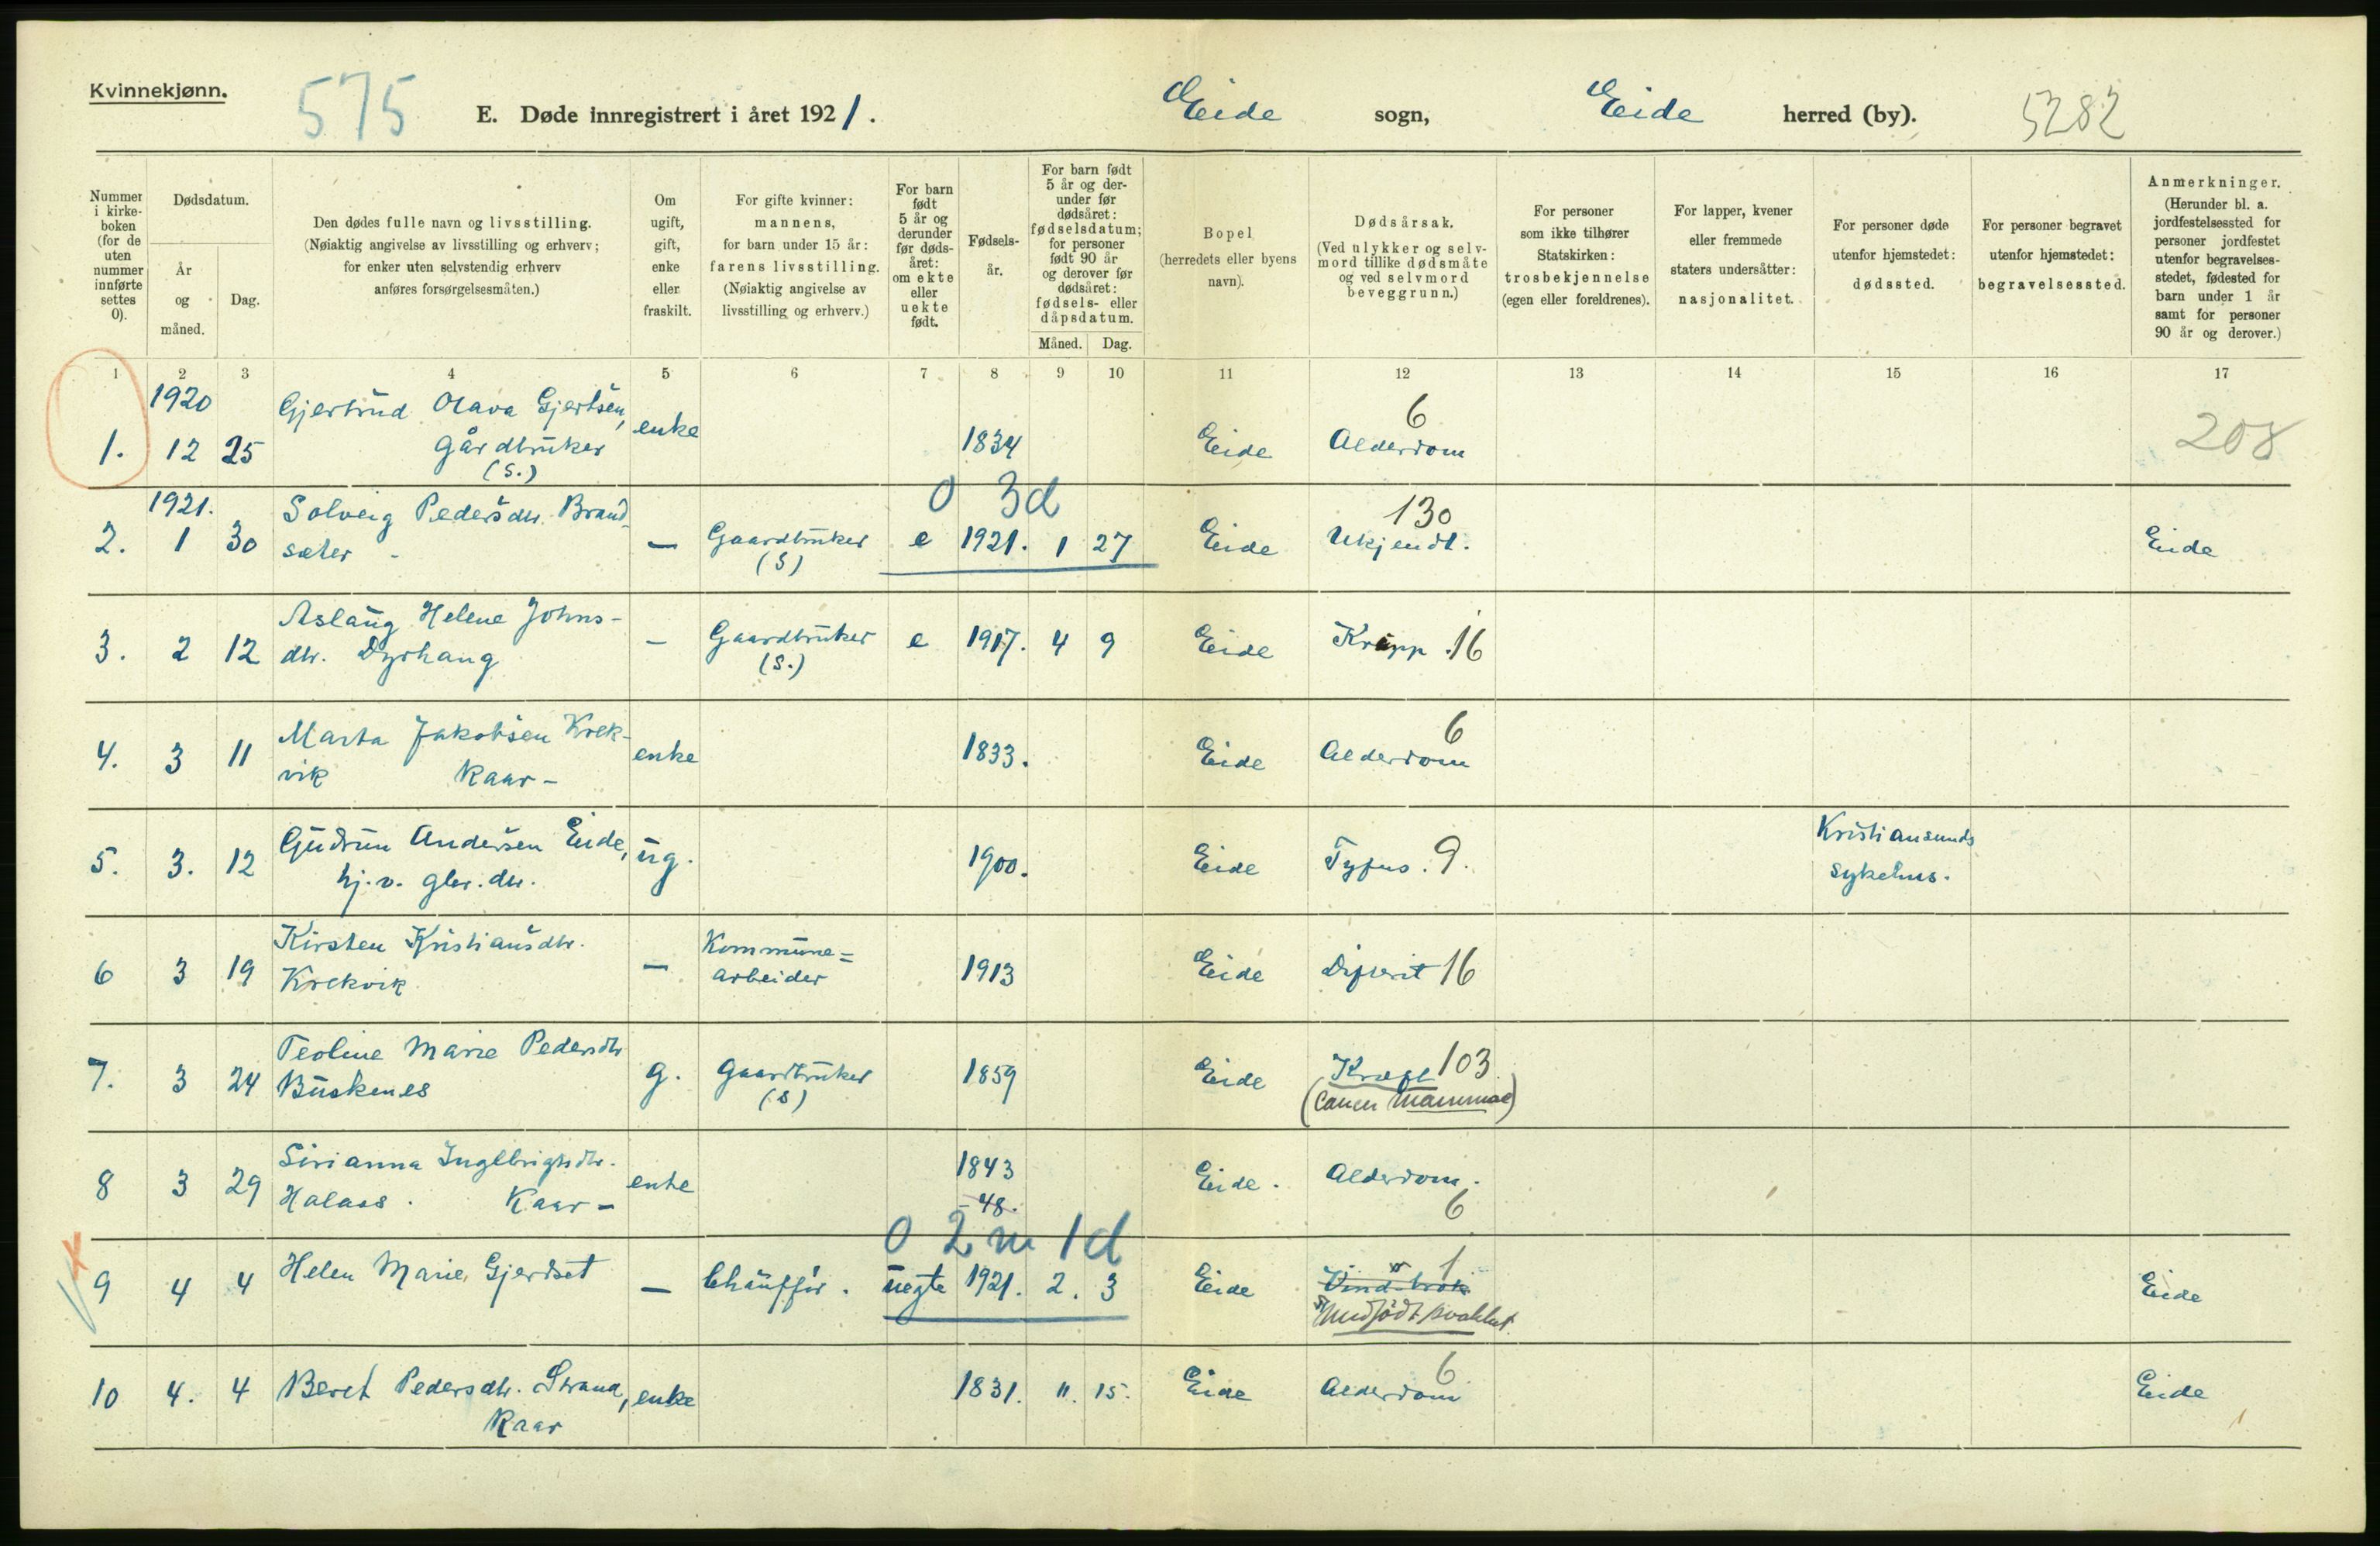 Kvinnekjønn.
575
E. Døde innregistrert i året 1921.
Eide sogn, Eide herred (by).
5282
Nummer i kirkeboken (for de uten nummer innførte settes 0).
Dødsdatum.
År og måned.
Dag.
Den dødes fulle navn og livsstilling.
(Nøiaktig angivelse av livsstilling og erhverv;
for enker uten selvstendig erhverv
anføres forsørgelsesmåten.)
Om ugift, gift, enke eller fraskilt.
For gifte kvinner:
mannens,
for barn under 15 år:
farens livsstilling.
(Nøiaktig angivelse av
livsstilling og erhverv.)
For barn født 5 år og derunder før dødsåret: om ekte eller uekte født.
Fødselsår.
For barn født 5 år og derunder før dødsåret: fødselsdatum; for personer født 90 år og derover før dødsåret: fødsels- eller dåpsdatum.
Måned. Dag.
Bopel
(herredets eller byens
navn).
Dødsårsak.
(Ved ulykker og selvmord tillike dødsmåte og ved selvmord beveggrunn.)
For personer
som ikke tilhører
Statskirken:
trosbekjennelse
(egen eller foreldrenes).
For lapper, kvener
eller fremmede
staters undersåtter:
nasjonalitet.
For personer døde
utenfor hjemstedet:
dødssted.
For personer begravet
utenfor hjemstedet:
begravelsessted.
Anmerkninger.
(Herunder bl. a.
jordfestelsessted for
personer jordfestet
utenfor begravelses-
stedet, fødested for
barn under 1 år
samt for personer
90 år og derover.)
1 2 3 4 5 6 7 8 9 10 11 12 13 14 15 16 17
1920 Gjertrud Olava Gjertsen, 6
1. 12 25 Gårdbruker enke 1834 Eide Alderdom 208
(S.)
0 3d
1921. Solveig Pedersdtr. Brand- 130
2. 1 30 sæter - — Gaardbruker e 1921. 1 27 Eide Ukjendt. Eide
(S)
Aslaug Helene Johns-
3. 2 12 dtr. Dyrhaug — Gaardbruker e 1917. 4 9 Eide Krupp 16
(S.)
Marta Jakobsen Krek- 6
4. 3 11 vik Kaar - enke 1833. Eide Alderdom
Gudrun Andersen Eide, Kristiansunds
5. 3. 12 hj.v. gbr. dtr. ug. 1900. Eide Tyfus. 9. sykehus.
Kirsten Kristiansdtr. Kommune=
6 3 19 Krekvik — arbeider 1913 Eide Difterit 16
Teoline Marie Pedersdtr
7. 3 24 Buskenes g. Gaardbruker 1859 Eide Kræft 103
(S) (Cancer mammae)
Sirianna Ingebrigtsdtr. 1843
8 3 29 Halaas. Kaar - enke -48. Eide. Alderdom.
6
0 2m 1d
9 4 4 Helen Marie Gjerdset — Chauffør. uegte 1921. 2. 3 Eide 1 Eide
Medfødt svakhet.
6
10 4. 4 Beret Pedersdtr. Strand, enke 1831. 11. 15. Eide Alderdom Eide
Kaar